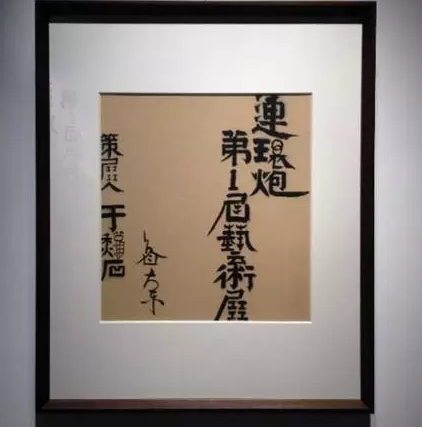 連環炮
第1屆藝術展
大东
策展人于
石